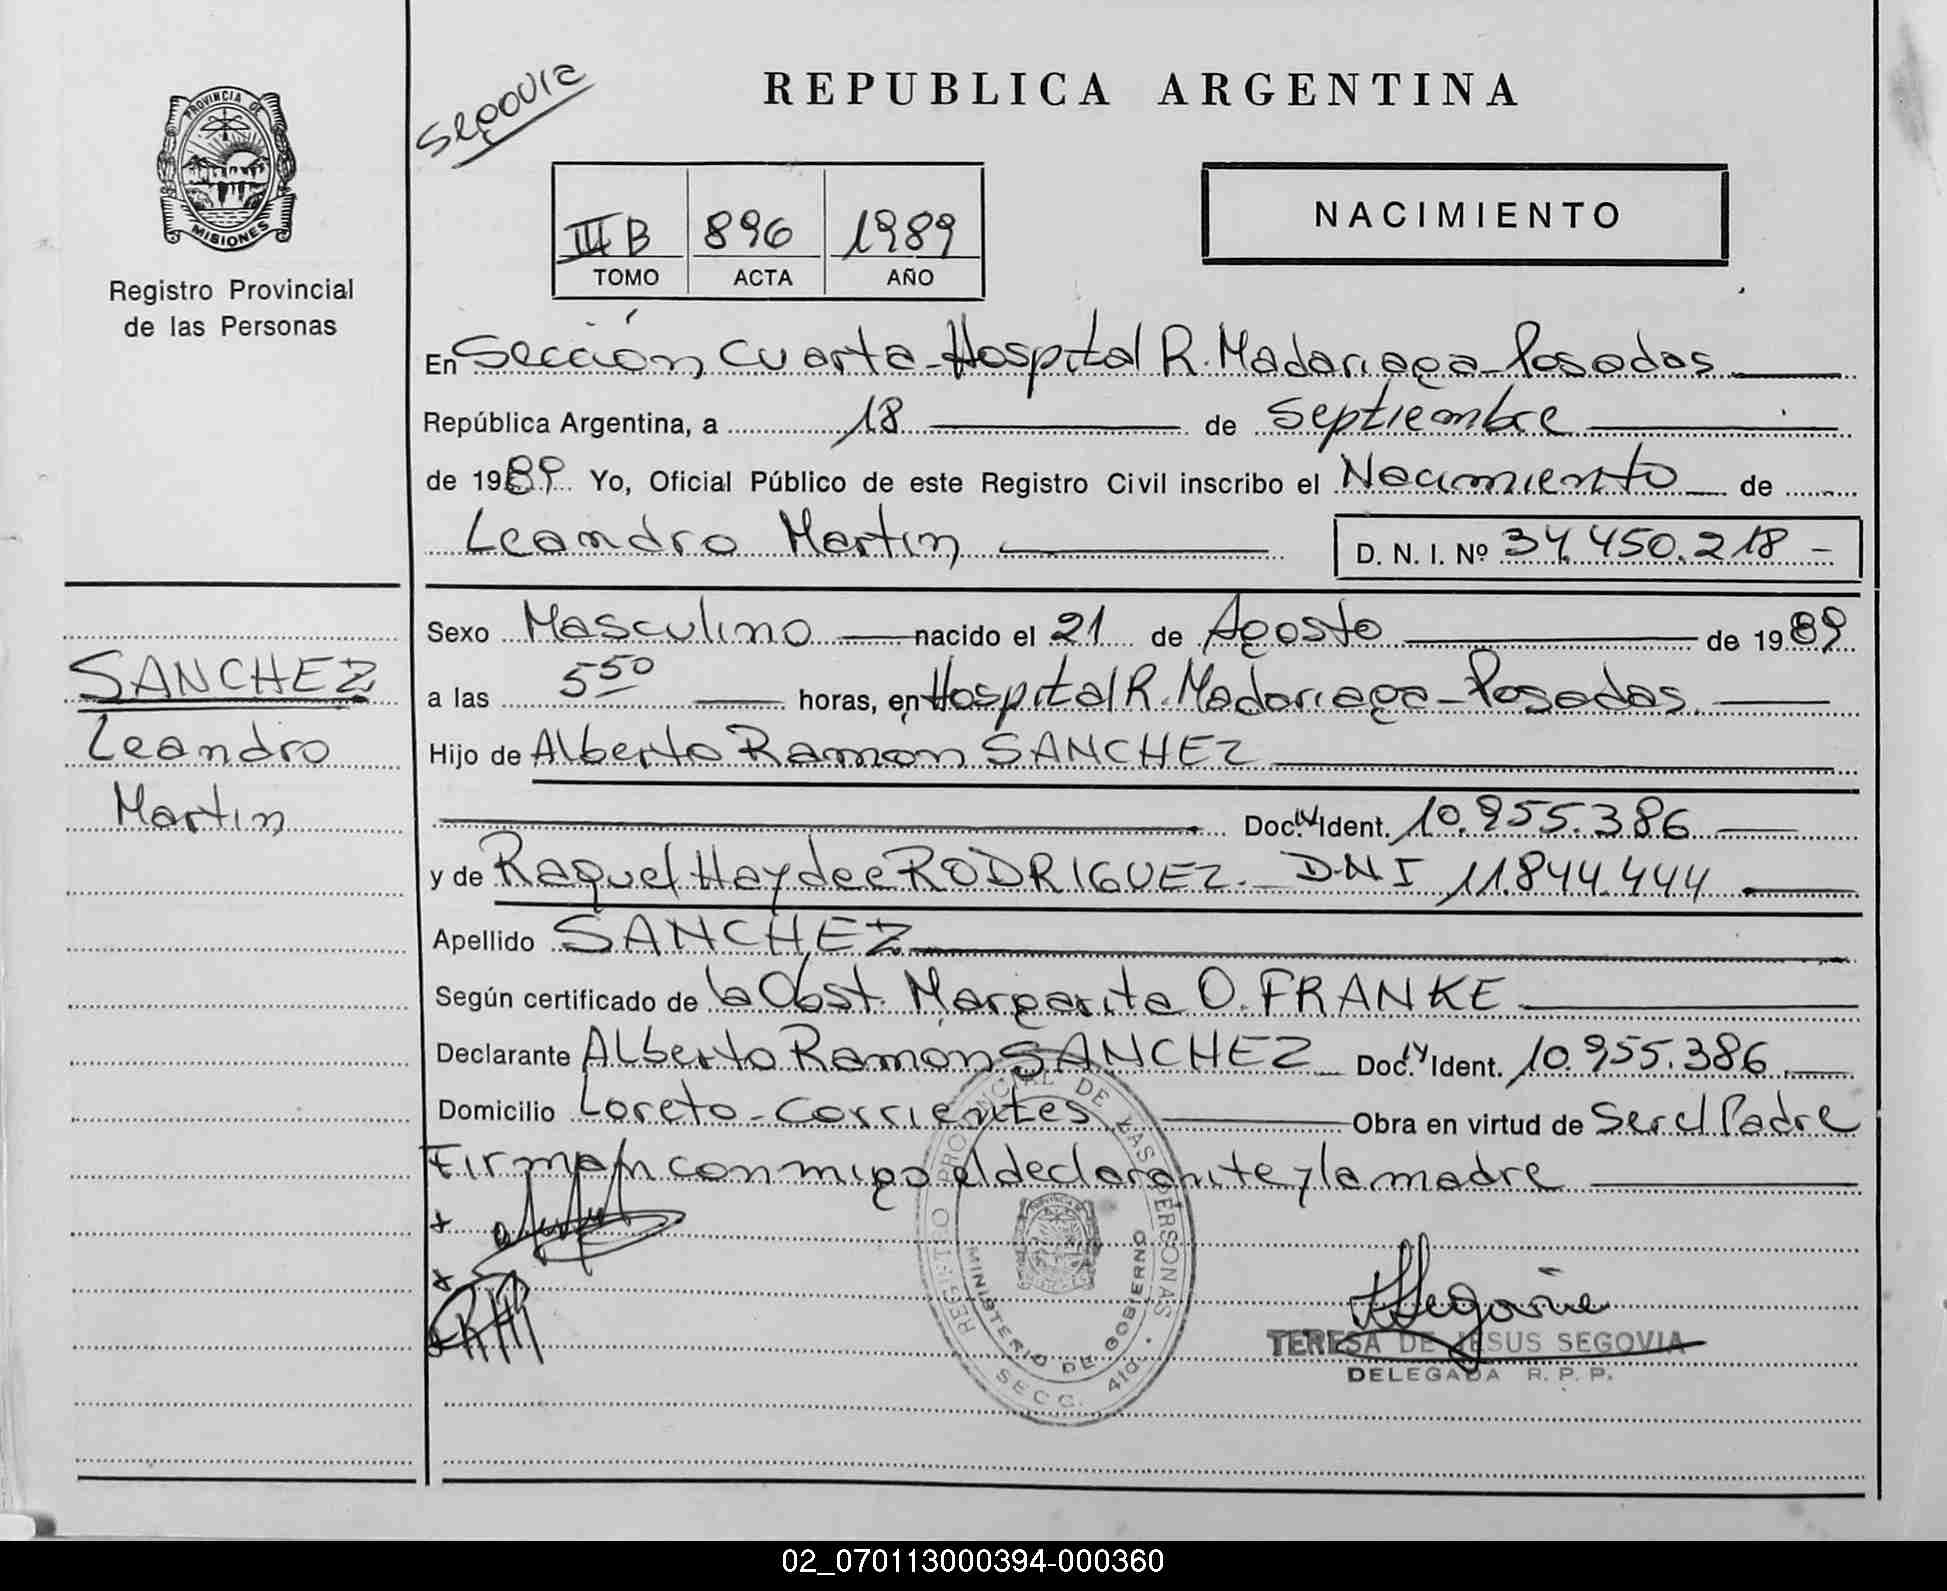 PROVINCIA DE
MISIONES
Registro Provincial
de las Personas
SANCHEZ
Leandro
Martin
Segovia
REPUBLICA ARGENTINA
III B 896 1989
TOMO ACTA AÑO
NACIMIENTO
En Sección Cuarta - Hospital R. Madariaga - Posadas
República Argentina, a 18 de Septiembre
de 1989 Yo, Oficial Público de este Registro Civil inscribo el Nacimiento de
Leandro Martin D. N. I. Nº 34.450.218 -
Sexo Masculino nacido el 21 de Agosto de 1989
a las 5 50 horas, en Hospital R. Madariaga - Posadas.
Hijo de Alberto Ramón SANCHEZ
Doc. Ident. 10.955.386
y de Raquel Haydee RODRIGUEZ. DNI 11.844.444
Apellido SANCHEZ
Según certificado de la Obst. Margarita O. FRANKE
Declarante Alberto Ramón SANCHEZ Doc. Ident. 10.955.386
Domicilio Loreto - Corrientes Obra en virtud de Ser el Padre
Firman conmigo el declarante y la madre
REGISTRO PROVINCIAL DE LAS PERSONAS
MINISTERIO DE GOBIERNO
SECC. 4ta.
TERESA DE JESUS SEGOVIA
DELEGADA R. P. P.
02_070113000394-000360